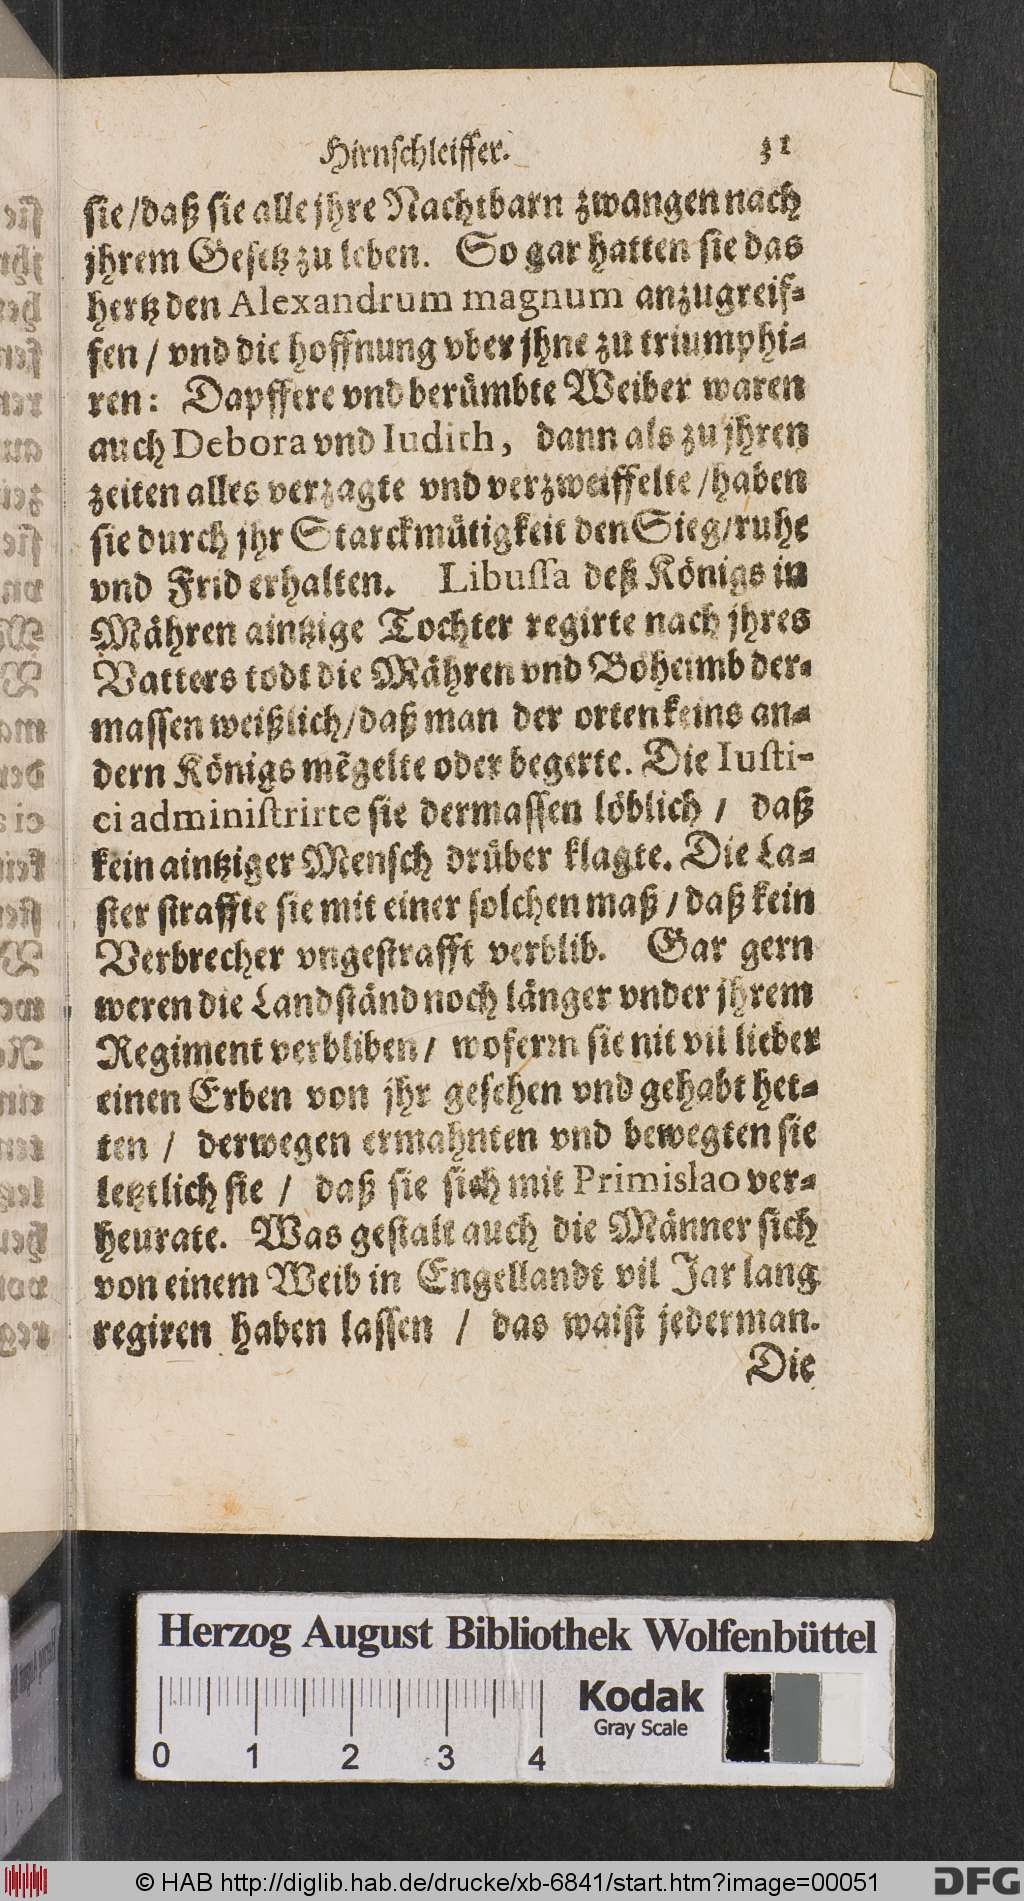 Hirnschleiffer. 31
sie/daß sie alle jhre Nachtbarn zwangen nach
jhrem Gesetz zu leben. So gar hatten sie das
hertz den Alexandrum magnum anzugreif-
fen / vnd die hoffnung vber jhne zu triumphi-
ren: Dapffere vnd berümbte Weiber waren
auch Debora vnd Iudith, dann als zu jhren
zeiten alles verzagte vnd verzweiffelte /haben
sie durch jhr Starckmütigkeit den Sieg/ruhe
vnd Frid erhalten. Libussa deß Königs in
Mähren aintzige Tochter regirte nach jhres
Vatters todt die Mähren vnd Böheimb der-
massen weißlich/daß man der orten keins an-
dern Königs mẽgelte oder begerte. Die Iusti-
ci administrirte sie dermassen löblich / daß
kein aintziger Mensch drüber klagte. Die La-
ster straffte sie mit einer solchen maß / daß kein
Verbrecher vngestrafft verblib. Gar gern
weren die Landständ noch länger vnder jhrem
Regiment verbliben / woferrn sie nit vil lieber
einen Erben von jhr gesehen vnd gehabt het-
ten / derwegen ermahnten vnd bewegten sie
letztlich sie / daß sie sich mit Primislao ver-
heurate. Was gestalt auch die Männer sich
von einem Weib in Engellandt vil Jar lang
regiren haben lassen / das waist jederman.
Die
Herzog August Bibliothek Wolfenbüttel
Kodak
Gray Scale
0 1 2 3 4
© HAB http://diglib.hab.de/drucke/xb-6841/start.htm?image=00051
DFG